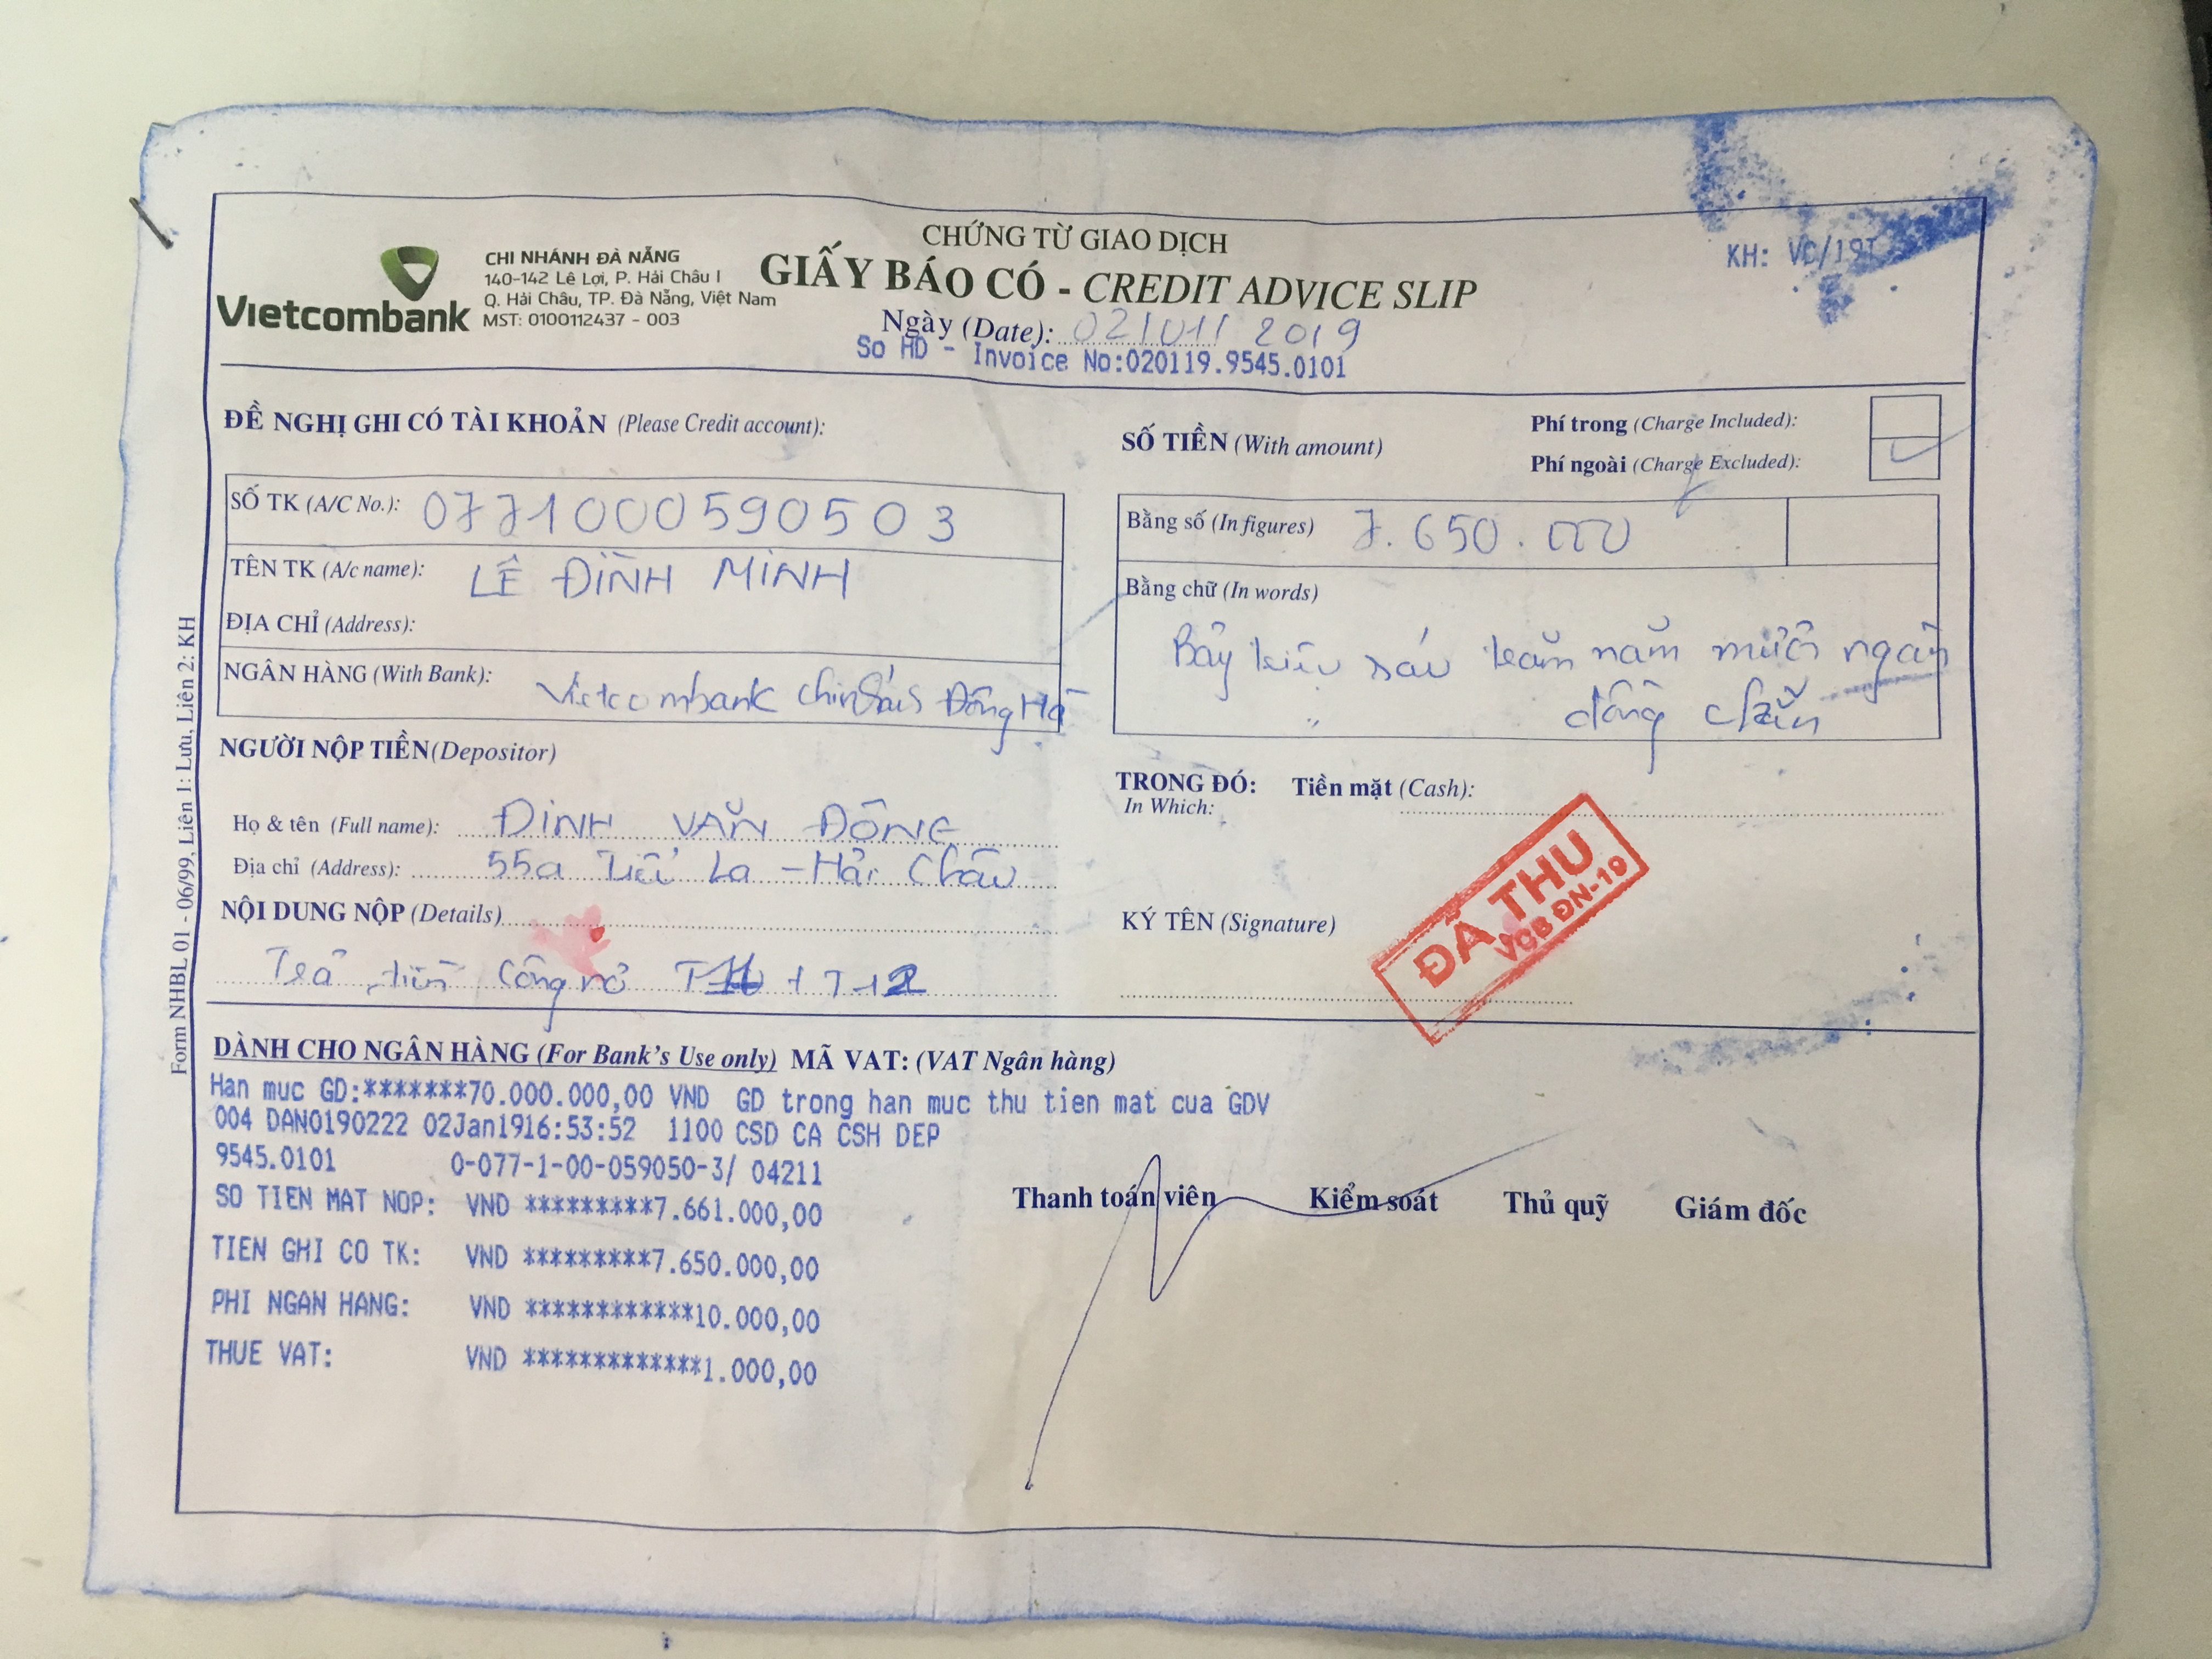 CHỨNG TỪ GIAO DỊCH
KH: VC/19T
Vietcombank
CHI NHÁNH ĐÀ NẴNG
140-142 Lê Lợi, P. Hải Châu I
Q. Hải Châu, TP. Đà Nẵng, Việt Nam
MST: 0100112437 - 003
GIẤY BÁO CÓ - CREDIT ADVICE SLIP
Ngày (Date): 02/01/2019
So HD - Invoice No:020119.9545.0101
ĐỀ NGHỊ GHI CÓ TÀI KHOẢN (Please Credit account):
SỐ TK (A/C No.): 0771000590503
TÊN TK (A/c name): LÊ ĐÌNH MINH
ĐỊA CHỈ (Address):
NGÂN HÀNG (With Bank): Vietcombank chi nhánh Đông Hà
SỐ TIỀN (With amount)
Phí trong (Charge Included):
Phí ngoài (Charge Excluded):
Bằng số (In figures) 7.650.000
Bằng chữ (In words)
Bảy triệu sáu trăm năm mươi ngàn
đồng chẵn
NGƯỜI NỘP TIỀN (Depositor)
Họ & tên (Full name): ĐINH VĂN ĐÔNG
Địa chỉ (Address): 55a Tiểu La - Hải Châu
NỘI DUNG NỘP (Details)
Trả tiền công nợ T11 + T12
TRONG ĐÓ: Tiền mặt (Cash):
In Which:
KÝ TÊN (Signature)
ĐÃ THU
VCB ĐN-19
DÀNH CHO NGÂN HÀNG (For Bank's Use only) MÃ VAT: (VAT Ngân hàng)
Han muc GD:*******70.000.000,00 VND GD trong han muc thu tien mat cua GDV
004 DAN0190222 02Jan1916:53:52 1100 CSD CA CSH DEP
9545.0101 0-077-1-00-059050-3/ 04211
SO TIEN MAT NOP: VND ********7.661.000,00
TIEN GHI CO TK: VND ********7.650.000,00
PHI NGAN HANG: VND ***********10.000,00
THUE VAT: VND ************1.000,00
Thanh toán viên Kiểm soát Thủ quỹ Giám đốc
Form NHBL 01 - 06/99, Liên 1: Lưu, Liên 2: KH